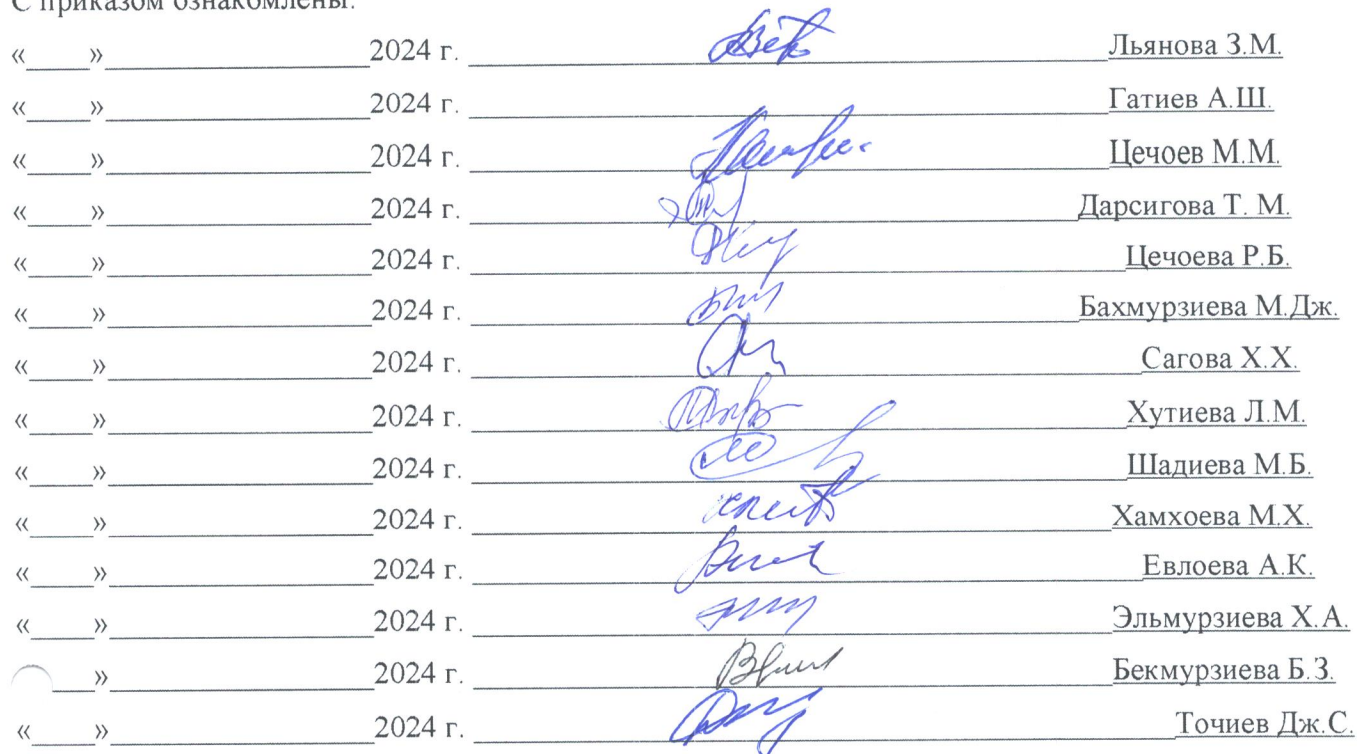 С приказом ознакомлены:
«____»____________________2024 г. ____________________Льянова З.М.
«____»____________________2024 г. ____________________Гатиев А.Ш.
«____»____________________2024 г. ____________________Цечоев М.М.
«____»____________________2024 г. ____________________Дарсигова Т. М.
«____»____________________2024 г. ____________________Цечоева Р.Б.
«____»____________________2024 г. ____________________Бахмурзиева М.Дж.
«____»____________________2024 г. ____________________Сагова Х.Х.
«____»____________________2024 г. ____________________Хутиева Л.М.
«____»____________________2024 г. ____________________Шадиева М.Б.
«____»____________________2024 г. ____________________Хамхоева М.Х.
«____»____________________2024 г. ____________________Евлоева А.К.
«____»____________________2024 г. ____________________Эльмурзиева Х.А.
____»____________________2024 г. ____________________Бекмурзиева Б.З.
«____»____________________2024 г. ____________________Точиев Дж.С.